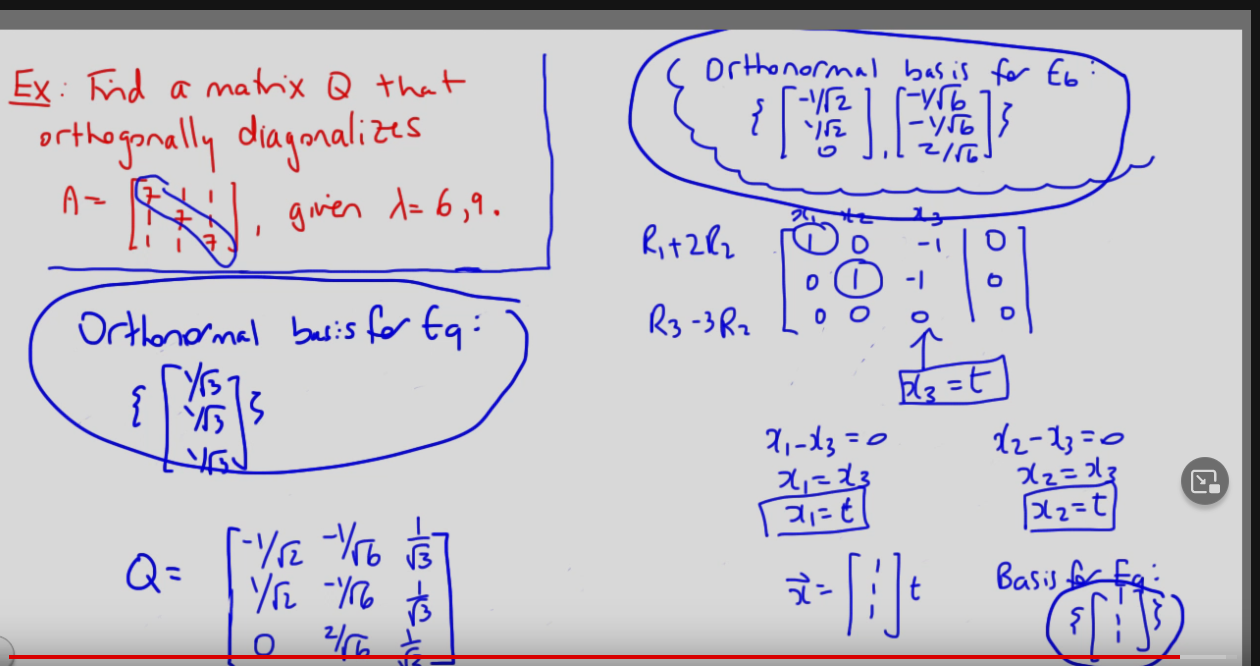 Ex: Find a matrix Q that
orthogonally diagonalizes
A = [7 1 1
1 7 1
1 1 7], given λ = 6, 9.
Orthonormal basis for E9:
{ [1/√3
1/√3
1/√3] }
Q = [-1/√2 -1/√6 1/√3
1/√2 -1/√6 1/√3
0 2/√6
Orthonormal basis for E6:
{ [-1/√2
1/√2
0], [-1/√6
-1/√6
2/√6] }
x1 x2 x3
R1+2R2 [1 0 -1 | 0
0 1 -1 | 0
R3-3R2 0 0 0 | 0]
x3 = t
x1-x3=0 x2-x3=0
x1=x3 x2=x3
x1=t x2=t
x⃗ = [1
1
1] t
Basis for E9:
{ [1
1
1] }